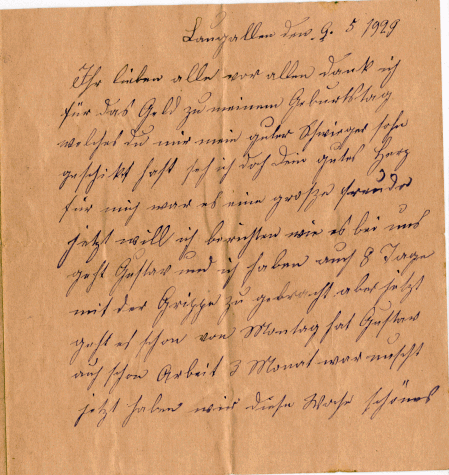 Laugallen den 9. 5 1929
Ihr lieben alle vor allen dank ich
für das Geld zu meinem Geburtstag
welches du mir mein guter Schwieger sohn
geschikt hast seh ich doch dein gutes Herz
für mich war es eine große freude
jetzt will ich berichten wie es bei uns
geht Gustav und ich haben auch 8 Tage
mit der Grippe zu gebracht aber jetzt
geht es schon von Montag hat Gustav
auch schon Arbeit 3 Monat war nuscht
jetzt haben wir diese Woche schönes